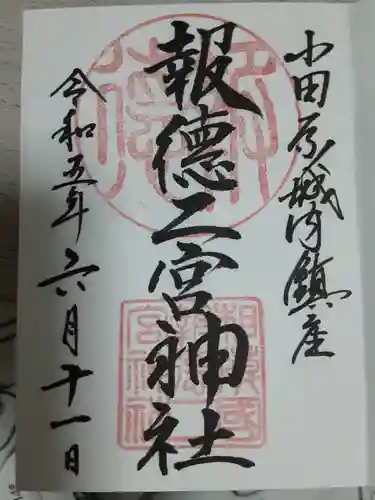 小田原城内鎮座
報徳二宮神社
令和五年六月十一日